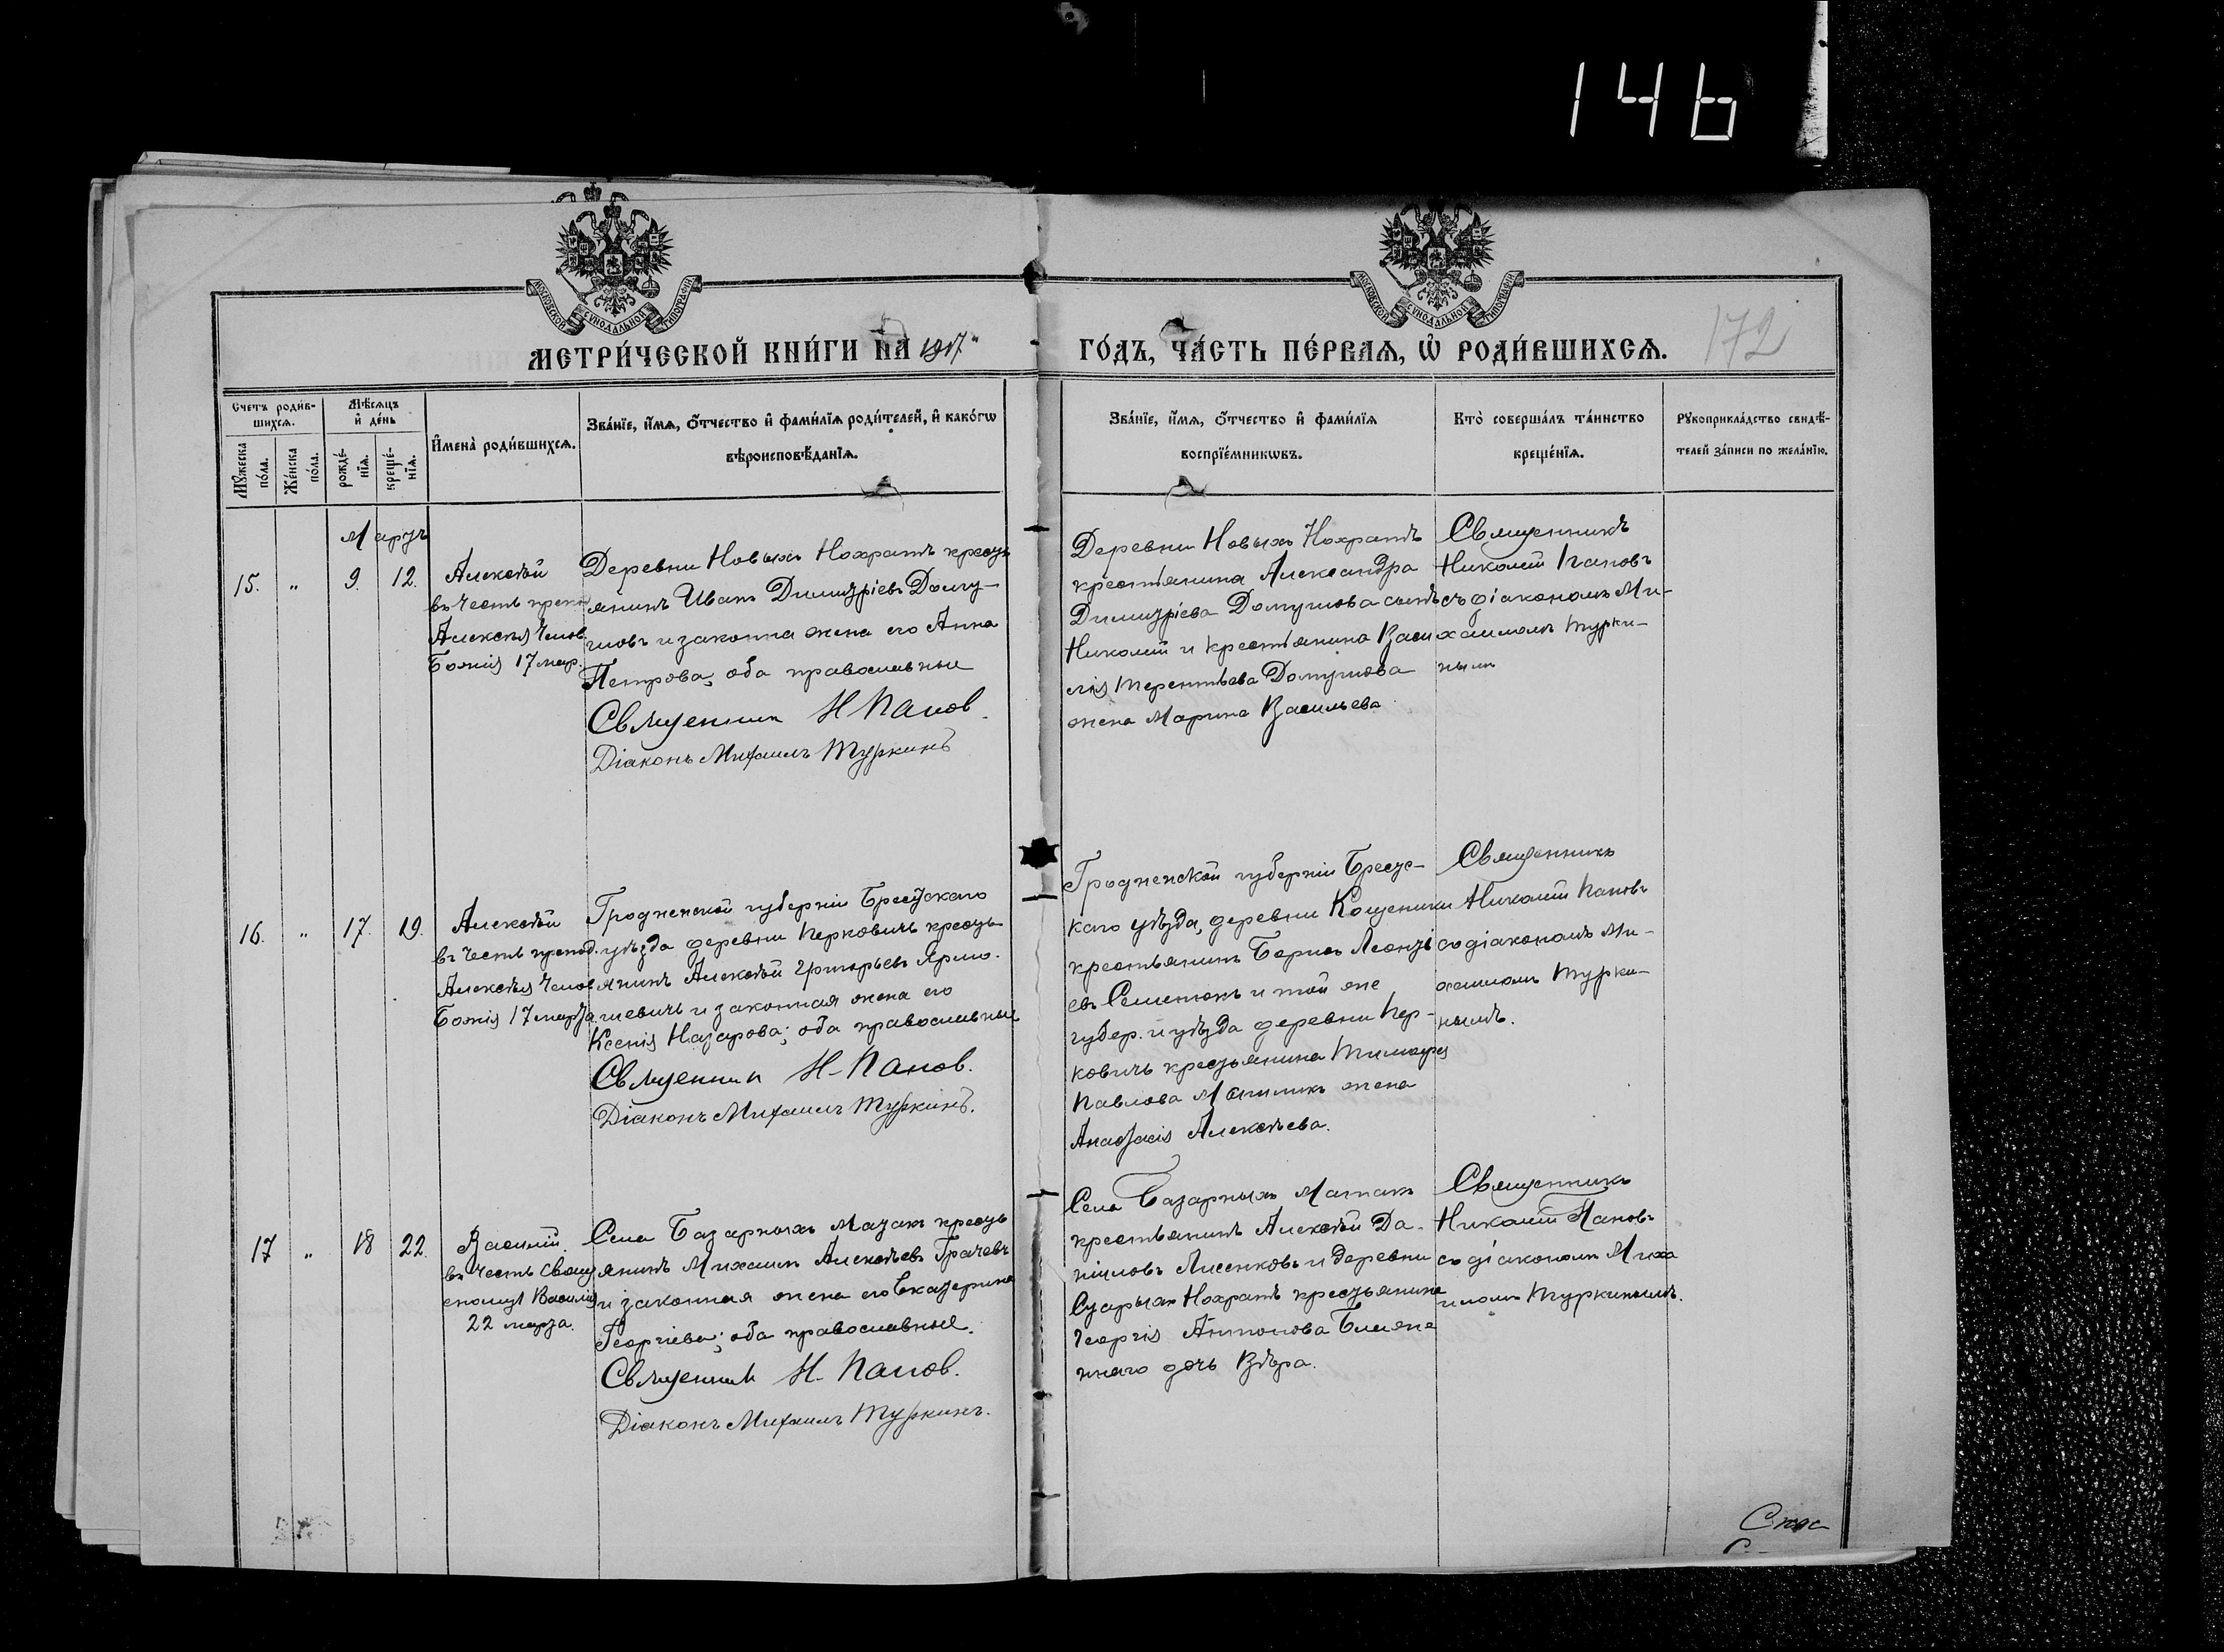 146
МОСКОВСКОЙ СѴНОДАЛЬНОЙ ТИПОГРАФІИ
МОСКОВСКОЙ СѴНОДАЛЬНОЙ ТИПОГРАФІИ
МЕТРИ́ЧЕСКОЙ КНИ́ГИ НА 1917
ГО́ДЪ, ЧА́СТЬ ПЕ́РВАЯ, Ѡ҆ РОДИ́ВШИХСЯ.
172
Счетъ роди́в-
шихся.
Мꙋжеска по́ла.
Же́нска по́ла.
Мѣсяцъ
и҆ де́нь
рожде́-
нїя.
креще́-
нїя.
И҆мена̀ роди́вшихся.
Зва́нїе, и҆́мя, ѻ҆́тчество и҆ фами́лїя роди́телей, и҆ како́гѡ
вѣроисповѣ́данїя.
Зва́нїе, и҆́мя, ѻ҆́тчество и҆ фами́лїя
воспрїе́мникѡвъ.
Кто̀ соверша́лъ та́инство
креще́нїя.
Рꙋкоприкла́дство свидѣ́-
телей за́писи по жела́нїю.
Мартъ
15. " 9. 12.
Алексѣй
въ честь преп.
Алексѣя Челов.
Божія 17 мар.
Деревни Новыхъ Нохратъ кресть
янинъ Иванъ Димитріевъ Долгу-
шовъ и законна жена его Анна
Петрова; оба православные
Священник Н Панов.
Діаконъ Михаилъ Туркинъ
Деревни Новыхъ Нохратъ
крестьянина Александра
Димитріева Долгушова сынъ
Николай и крестьянина Васи
лія Терентьева Долгушова
жена Марина Васильева
Священникъ
Николай Пановъ
съ діакономъ Ми-
хаиломъ Турки-
нымъ
16. " 17. 19.
Алексѣй
въ честь препод.
Алексѣя Челов
Божія 17 марта
Гродненской губерніи Брестскаго
уѣзда деревни Перковичъ кресть
янинъ Алексѣй Григорьевъ Ярмо-
шевичъ и законная жена его
Ксенія Назарова; оба православные
Священник Н. Панов.
Діаконъ Михаилъ Туркинъ.
Гродненской губерніи Брест-
каго уѣзда, деревни
крестьянинъ Борисъ Леонті
евъ и той же
губер. и уѣзда деревни Пер-
ковичъ крестьянина Тимофея
Павлова жена
Анастасія Алексѣева.
Священникъ
Николай Пановъ
со діакономъ Ми-
хаиломъ Турки-
нымъ.
17 " 18 22.
Василій.
въ честь Свящ
еномуч Василія
22 марта.
Села Базарныхъ Матакъ кресть
янинъ Михаилъ Алексѣевъ Грачевъ
и законная жена его Екатерина
Георгіева; оба православные.
Священник Н. Панов.
Діаконъ Михаилъ Туркинъ.
Села Базарныхъ Матакъ
крестьянинъ Алексѣй Да-
ніиловъ Лисенковъ и деревни
Старыхъ Нохратъ крестьянина
Георгія Антонова
дочь Вѣра.
Священникъ
Николай Пановъ
съ діакономъ Миха
иломъ Туркинымъ.